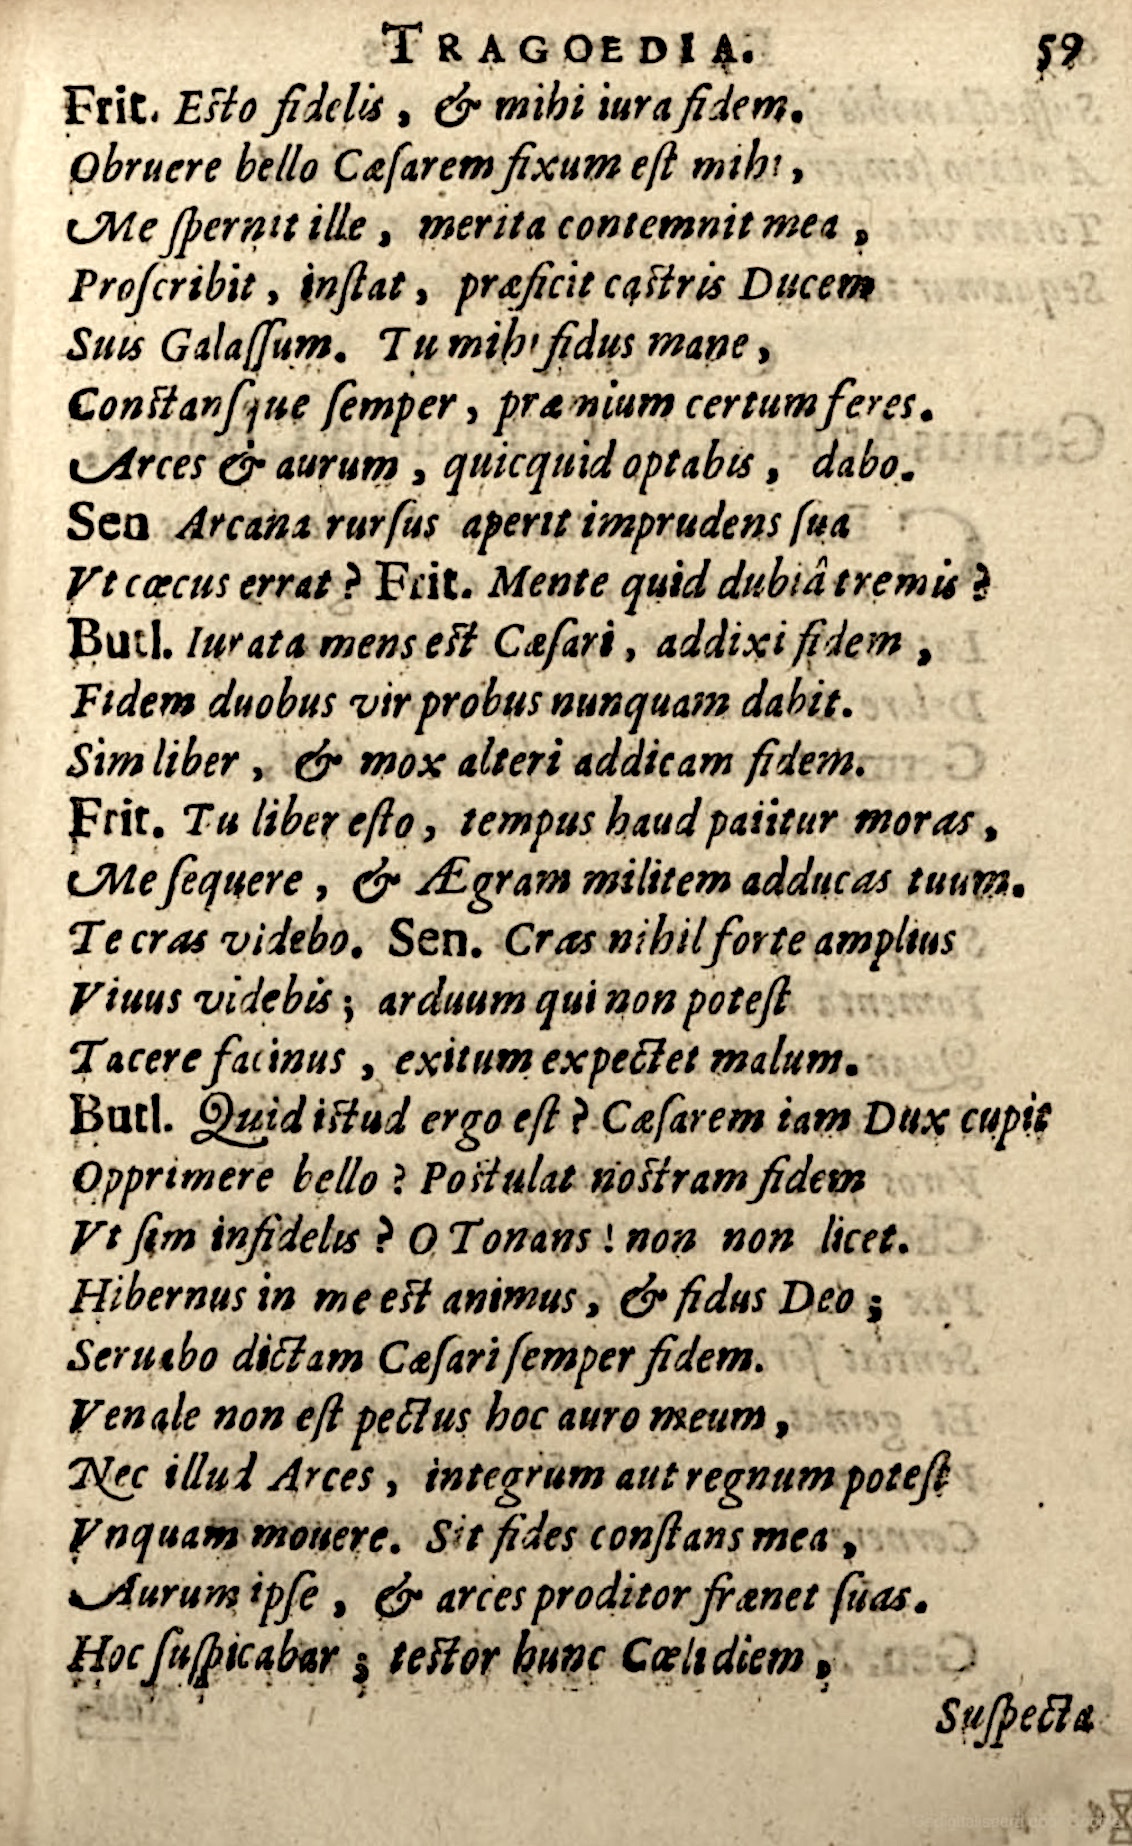 TRAGOEDIA. 59
Frit. Esto fidelis, & mihi iura fidem.
Obruere bello Cæsarem fixum est mihi,
Me spernit ille, merita contemnit mea,
Proscribit, instat, præficit castris Ducem
Suis Galassum. Tu mihi fidus mane,
Constansque semper, præmium certum feres.
Arces & aurum, quicquid optabis, dabo.
Sen Arcana rursus aperit imprudens sua
Vt cæcus errat? Frit. Mente quid dubiâ tremis?
Butl. Iurata mens est Cæsari, addixi fidem,
Fidem duobus vir probus nunquam dabit.
Sim liber, & mox alteri addicam fidem.
Frit. Tu liber esto, tempus haud patitur moras,
Me sequere, & Ægram militem adducas tuum.
Te cras videbo. Sen. Cras nihil forte amplius
Viuus videbis; arduum qui non potest
Tacere facinus, exitum expectet malum.
Butl. Quid istud ergo est? Cæsarem iam Dux cupit
Opprimere bello? Postulat nostram fidem
Vt sim infidelis? O Tonans! non non licet.
Hibernus in me est animus, & fidus Deo;
Seruabo dictam Cæsari semper fidem.
Venale non est pectus hoc auro meum,
Nec illud Arces, integrum aut regnum potest
Vnquam mouere. Sit fides constans mea,
Aurum ipse, & arces proditor frænet suas.
Hoc suspicabar; testor hunc Cœli diem,
Suspecta